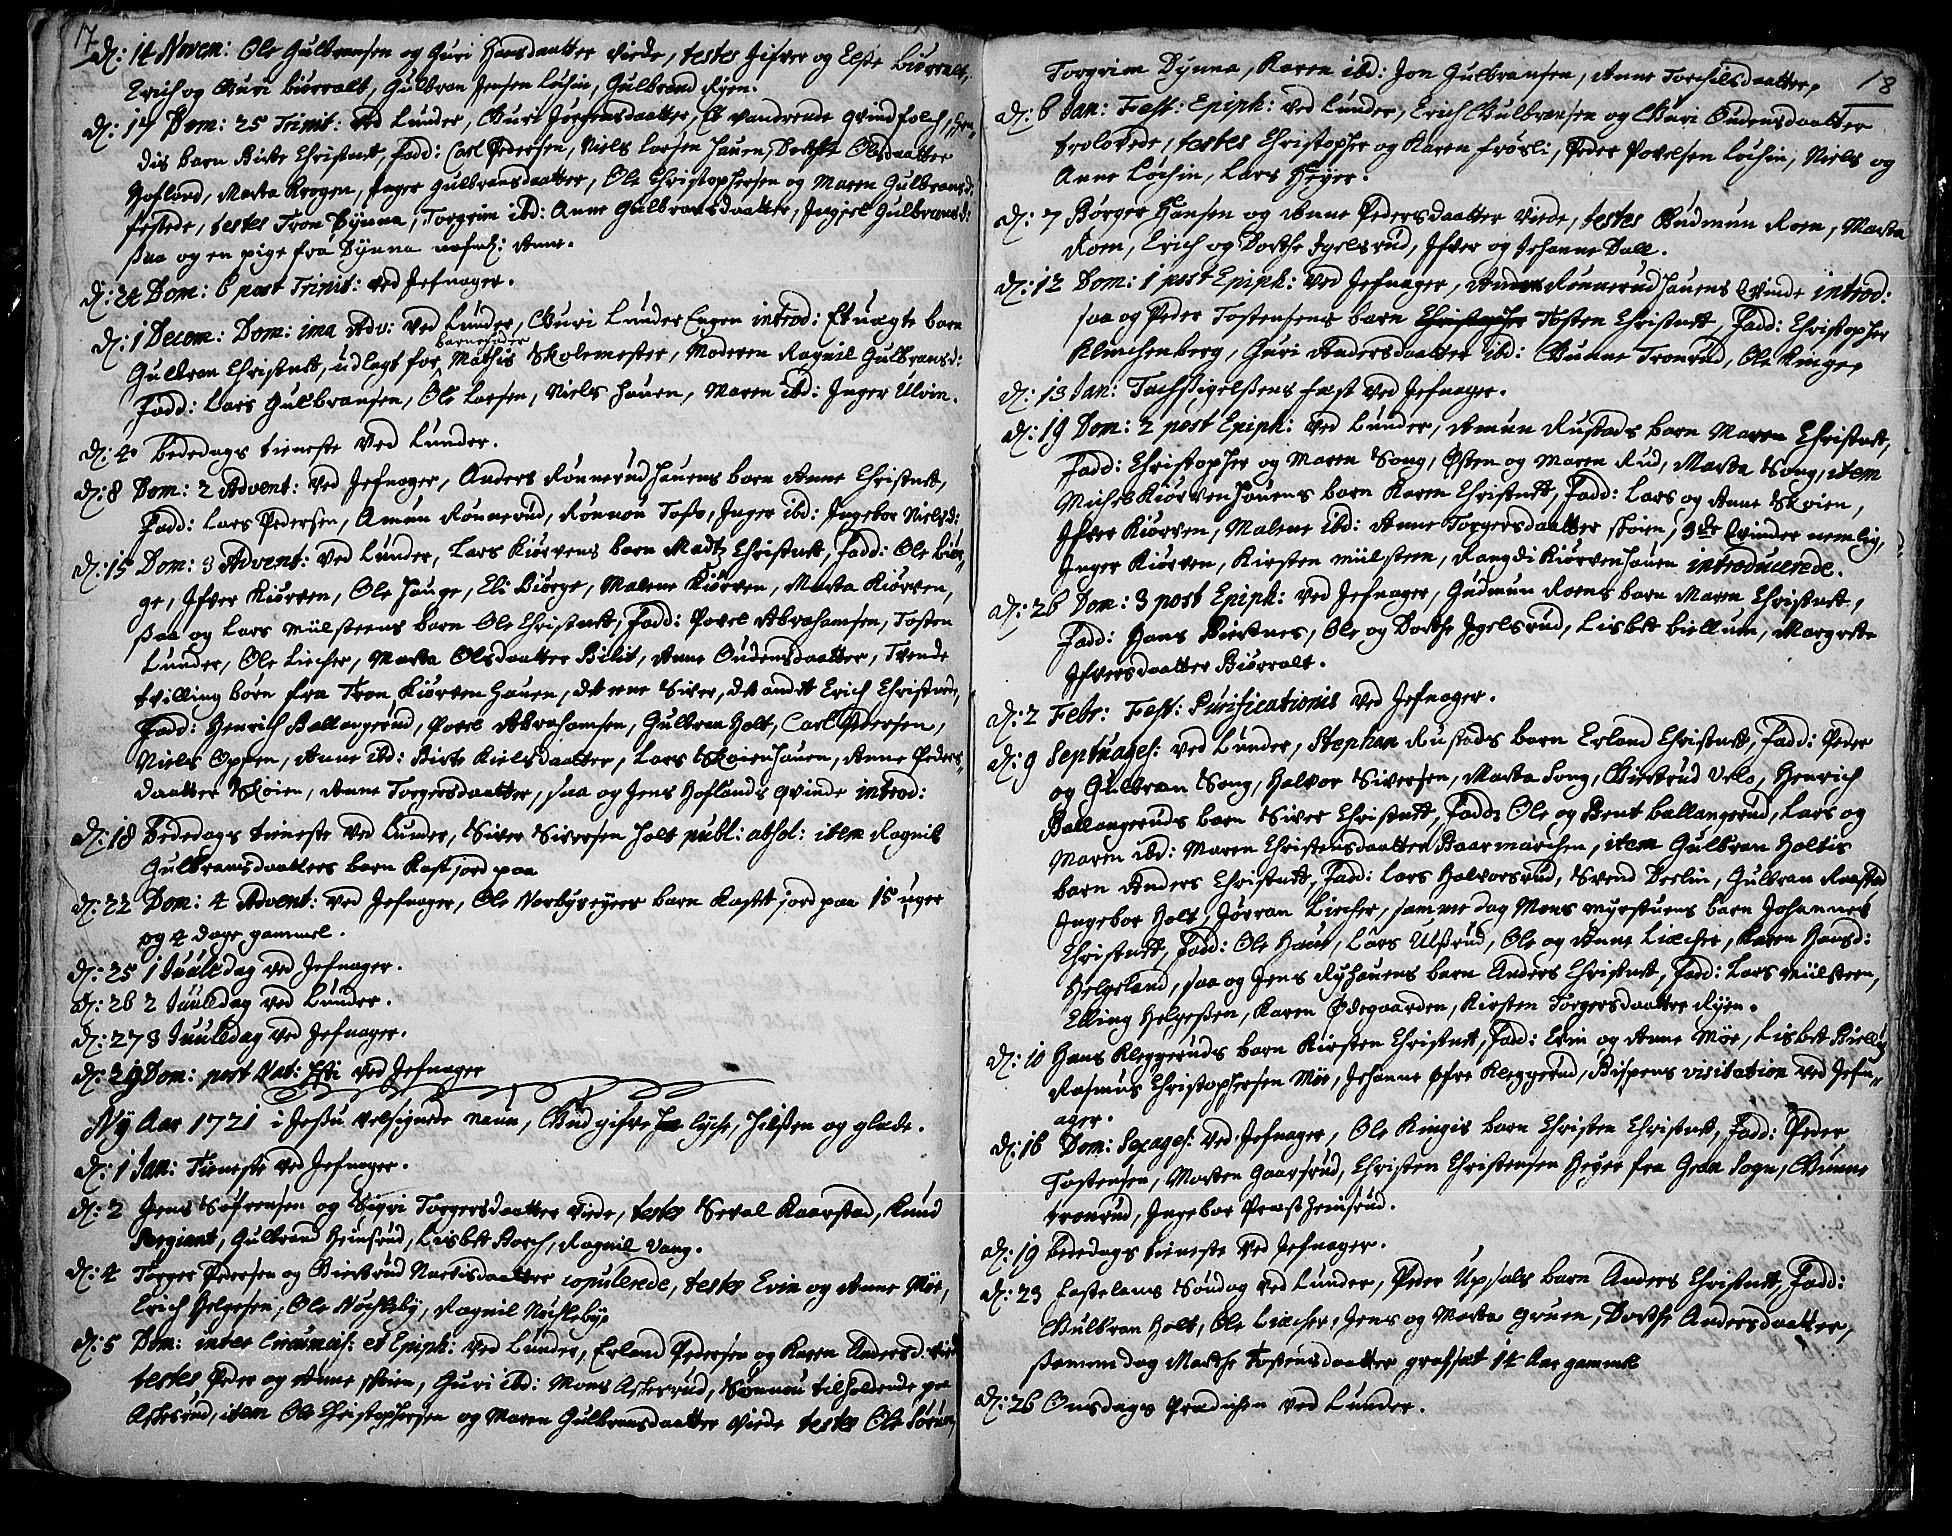 17
D: 14 Novem: Ole Gulbransen og Guri Hansdaatter viede, testes Gifver og Else Biørralt,
Erich og Guri biørralt, Gulbran Jensen Løchin, Gulbrand Ryen.
D: 17 Dom: 25 Trinit: ved Lunder, Guri Joensdaatter, Et vandrende qvindfolch,
dis barn Birte Christnet, Fadd: Carl Pedersen, Niels Larsen hauen, Dorthe Olsdaatter
Hofland, Marta Krogen, Inger Gulbransdaatter, Ole Christophersen og Maren Gulbransd:
festede, testes Tron Dynna, Torgrim ibd: Anne Gulbransdaatter, Ingjer Gulbransd:
saa og en pige fra Dynna nafnl: Anne.
D: 24 Dom: 6 post Trinit: ved Jefnager.
D: 1 Decem: Dom: 1ma Adv: ved Lunder, Guri Lunder Engen introd: Et uægte barn
Gulbran Christnet, udlagt for barnefader Mathis Skolemester, Moderen Ragnil Gulbransd:
Fadd: Lars Gulbransen, Ole Larsen, Niels hauen, Maren ibd: Inger Ulvin.
D: 4 bededags tieneste ved Lunder.
D: 8 Dom: 2 Advent: ved Jefnager, Anders Rønnerud hauens barn Anne Christnet,
Fadd: Lars Pedersen, Amun Rønnerud, Rønnou Tofs, Inger ibd: Ingebor Nielsd:
D: 15 Dom: 3 Advent: ved Lunder, Lars Kiørvens barn Madtz Christnet, Fadd: Ole Biør-
ge, Ifver Kiørven, Ole Hauge, Eli Biørge, Malene Kiørven, Marta Kiørven,
saa og Lars Mülsteens barn Ole Christnet, Fadd: Povel Abrahamsen, Tosten
Lunder, Ole Liecher, Marta Olsdaatter Bilit, Anne Oudensdaatter, Tvende
tvilling børn fra Tron Kiørven hauen, det ene Siver, det andet Erich Christnede,
Fadd: Henrich Ballangerud, Povel Abrahamsen, Gulbran Holt, Carl Pedersen,
Niels Oppen, Anne ibd: Birte Nielsdaatter, Lars Skøien hauen, Anne Peders-
daatter Skøien, Anne Torgersdaatter, saa og Jens Hoflands qvinde introd:
D: 18 Bededags tieneste ved Lunder, Siver Siversen Holt publ: absol: item Ragnil
Gulbransdaatters barn Kast jord paa
D: 22 Dom: 4 Advent: ved Jefnager, Ole Norbyeyers barn Kastet jord paa 15 uger
og 4 dage gammel.
D: 25 1 Juuledag ved Jefnager.
D: 26 2 Juuledag ved Lunder.
D: 27 3 Juuledag ved Jefnager.
D: 29 Dom: post Nat: Xsti ved Jefnager
Ny Aar 1721 i Jesu velsignede navn, Gud gifve lyche, hilsen og glæde.
D: 1 Jan: Tieneste ved Jefnager.
D: 2 Jens Søfrensen og Sigri Torgersdaatter viede, testes Seval Kaarstad, Knud
Sergiant, Gulbrand Heinsrud, Lisbet Bosch, Ragnil Vang.
D: 4 Torger Pedersen og Giertrud Narvisdaatter copulerede, testes Evin og Anne Möe,
Erich Helgesen, Ole Nöchleby, Ragnil Nöchleby,
D: 5 Dom: inter Circumcis: et Epiph: ved Lunder, Erland Pedersen og Karen Andersd: viede
testes Peder og Anne skøien, Guri ibd: Mons Askerud, Rønnou tilholdende paa
Askerud, item Ole Christophersen og Maren Gulbransdaatter viede testes Ole Sørum,
18
Torgrim Dynna, Karen ibd: Jon Gulbransen, Anne Torchilsdaatter,
D: 6 Jan: Fest: Epiph: ved Lunder, Erich Gulbransen og Guri Oudensdaatter
trolovede, testes Christopher og Karen Frøsli, Peder Povelsen Løchin, Niels og
Anne Løchin, Lars Heyer.
D: 7 Børger Hansen og Anne Pedersdaatter viede, testes Gudmun Roen, Marta
Roen, Erich og Dorthe Igelsrud, Ifver og Johanne Dall.
D: 12 Dom: 1 post Epiph: ved Jefnager, Anders Rønnerud hauens Qvinde introd:
saa og Peder Tostensens barn Christopher Tosten Christnet, Fadd: Christopher
Klinchenberg, Guri Andersdaatter ibd: Gunne Tronrud, Ole Kinge,
D: 13 Jan: Tachsigelsens fæst ved Jefnager.
D: 19 Dom: 2 post Epiph: ved Lunder, Amun Rustads barn Maren Christnet,
Fadd: Christopher og Maren Song, Østen og Maren Rud, Marta Song, item
Michel Kiørven hauens barn Karen Christnet, Fadd: Lars og Anne Skøien,
Ifver Kiørven, Malene ibd: Anne Torgersdaatter skøien, 3de Qvinder nemlig,
Inger Kiørven, Kirsten mülsteen, Rangdi Kiørven hauen introducerede.
D: 26 Dom: 3 post Epiph: ved Jefnager, Gudmun Roens barn Maren Christnet,
Fadd: Hans Biertnes, Ole og Dorthe Igelsrud, Lisbet biellum, Margrete
Ifversdaatter Biørralt.
D: 2 Febr: Fest: Purificationis ved Jefnager.
D: 9 Septuages: ved Lunder, Stephan Rustads barn Erland Christnet, Fadd: Peder
og Gulbran Song, Halvor Siversen, Marta Song, Giertrud Velo, Henrich
Ballangeruds barn Siver Christnet, Fadd: Ole og Bent ballangerud, Lars og
Maren ibd: Maren Christensdaatter Baarmarchen, item Gulbran Holtis
barn Anders Christnet, Fadd: Lars Halvorsrud, Svend Deelin, Gulbran Raastad
Ingebor Holt, Jørran Liecher, samme dag Mons Myrstuens barn Johannes
Christnet, Fadd: Ole Haur, Lars Ulsrud, Ole og Anne Liecher, Karen Hansd:
Helgeland, saa og Jens Ryhauens barn Anders Christnet, Fadd: Lars Mülsteen,
Elling Helgesen, Karen Ødegaarden, Kirsten Torgersdaatter Ryen.
D: 10 Hans Kleggeruds barn Kirsten Christnet, Fadd: Evin og Anne Möe, Lisbet Biellum
Rasmus Christophersen Möe, Johanne Øfre Kleggerud, Bispens visitation ved Jefn-
ager.
D: 16 Dom: Sexages: ved Jefnager, Ole Kingis barn Christen Christnet, Fadd: Peder
Tostensen, Morten Gaarsrud, Christen Christensen Heyer fra Gran Sogn, Gunne
tronrud, Ingebor Præst Heinsrud.
D: 19 bededags tieneste ved Jefnager.
D: 23 Fastelauns Søndag ved Lunder, Peder Upsals barn Anders Christnet, Fadd:
Gulbran Holt, Ole Liecher, Jens og Marta Gruen, Dorthe Andersdaatter,
samme dag Marthe Tostensdaatter grafsat 14 Aar gammel
D: 26 Onsdags Prædichen ved Lunder.